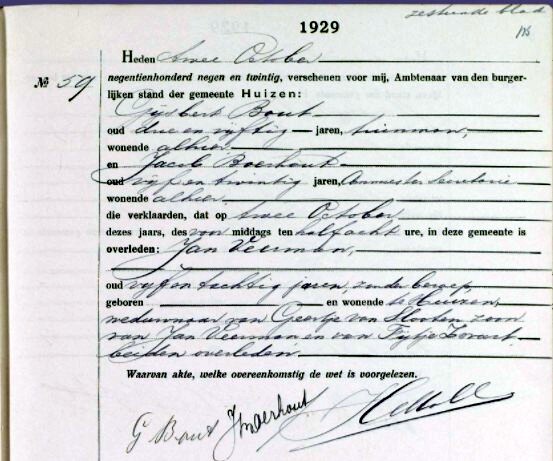 zestiende blad
1929
Heden twee October
No 59 negentienhonderd negen en twintig, verschenen voor mij, Ambtenaar van den burger-
lijken stand der gemeente Huizen:
Gijsbert Bout
oud drie en vijftig jaren, tuinman,
wonende alhier
en Jacob Boerhout
oud vijf en twintig jaren, Commies ter Secretarie
wonende alhier.
die verklaarden, dat op twee October
dezes jaars, des voor middags ten half acht ure, in deze gemeente is
overleden: Jan Veerman,
oud vijf en tachtig jaren, zonder beroep,
geboren en wonende te Huizen,
weduwnaar van Geertje van Slooten, zoon
van Jan Veerman en van Tijtje Zwart,
beiden overleden.
Waarvan akte, welke overeenkomstig de wet is voorgelezen.
G Bout